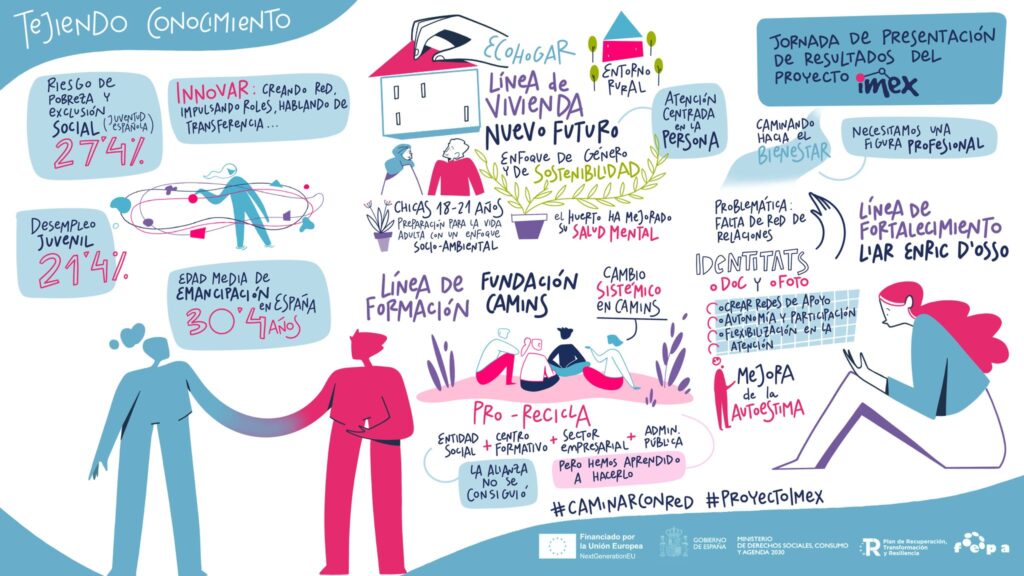 TEJIENDO CONOCIMIENTO
RIESGO DE
POBREZA Y
EXCLUSIÓN
SOCIAL (JUVENTUD
ESPAÑOLA)
27'4%
INNOVAR: CREANDO RED,
IMPULSANDO ROLES, HABLANDO DE
TRANSFERENCIA...
DESEMPLEO
JUVENIL
21'4%
EDAD MEDIA DE
EMANCIPACIÓN
EN ESPAÑA
30'4 AÑOS
ECOHOGAR
LÍNEA DE
VIVIENDA
NUEVO FUTURO
ENTORNO
RURAL
ATENCIÓN
CENTRADA
EN LA
PERSONA
ENFOQUE DE GÉNERO
Y DE SOSTENIBILIDAD
CHICAS 18-21 AÑOS
PREPARACIÓN PARA LA VIDA
ADULTA CON UN ENFOQUE
SOCIO-AMBIENTAL
EL HUERTO HA MEJORADO
SU SALUD MENTAL
LÍNEA DE
FORMACIÓN
FUNDACIÓN
CAMINS
CAMBIO
SISTÉMICO
EN CAMINS
PRO-RECICLA
ENTIDAD
SOCIAL
+ CENTRO
FORMATIVO
+ SECTOR
EMPRESARIAL
+ ADMIN.
PÚBLICA
LA ALIANZA
NO SE
CONSIGUIÓ
PERO HEMOS APRENDIDO
A HACERLO
JORNADA DE PRESENTACIÓN
DE RESULTADOS DEL
PROYECTO imex
CAMINANDO
HACIA EL
BIENESTAR
NECESITAMOS UNA
FIGURA PROFESIONAL
PROBLEMÁTICA:
FALTA DE RED DE
RELACIONES
LÍNEA DE
FORTALECIMIENTO
LLAR ENRIC D'OSSO
IDENTITATS
o DOC Y o FOTO
o CREAR REDES DE APOYO
o AUTONOMÍA Y PARTICIPACIÓN
o FLEXIBILIZACIÓN EN LA
ATENCIÓN
MEJORA
DE LA
AUTOESTIMA
#CAMINARCONRED #PROYECTOIMEX
Financiado por
la Unión Europea
NextGenerationEU
GOBIERNO
DE ESPAÑA
MINISTERIO
DE DERECHOS SOCIALES, CONSUMO
Y AGENDA 2030
R
Plan de Recuperación,
Transformación
y Resiliencia
fe pa